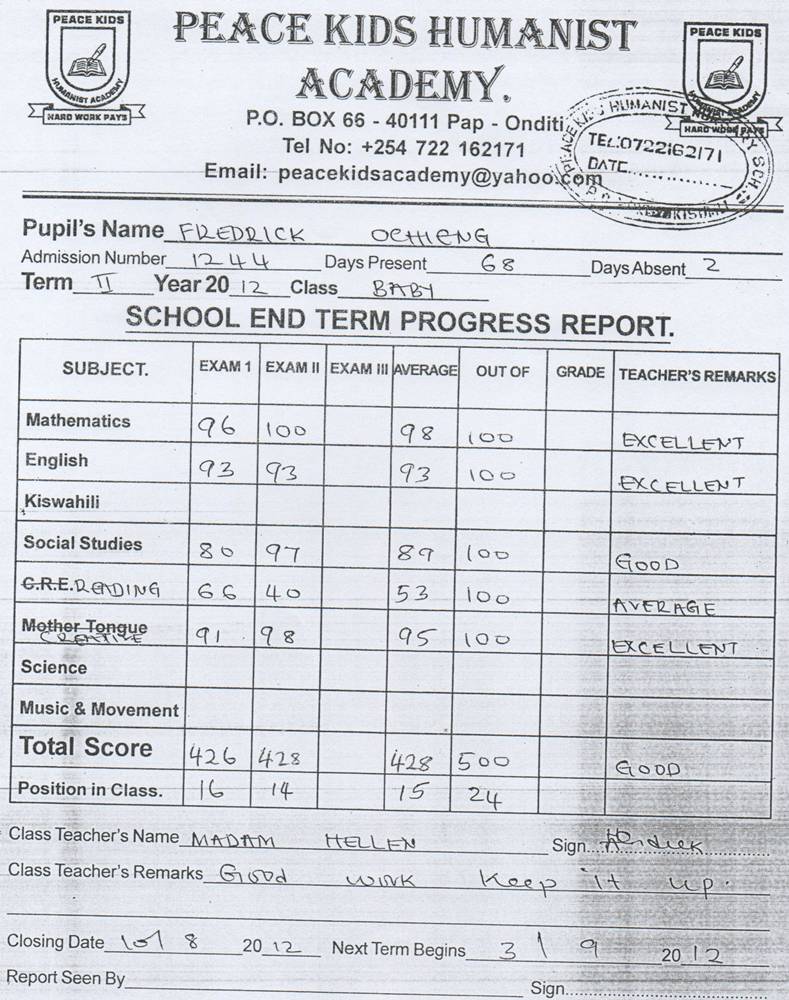 PEACE KIDS
HUMANIST ACADEMY
HARD WORK PAYS
PEACE KIDS HUMANIST
ACADEMY.
PEACE KIDS
HARD WORK PAYS
P.O. BOX 66 - 40111 Pap - Onditi
Tel No: +254 722 162171
Email: peacekidsacademy@yahoo.com
HUMANIST
TEL:0722162171
DATE
Pupil's Name FREDRICK OCHIENG
Admission Number 1244 Days Present 68 Days Absent 2
Term II Year 20 12 Class BABY
SCHOOL END TERM PROGRESS REPORT.
SUBJECT. EXAM 1 EXAM II EXAM III AVERAGE OUT OF GRADE TEACHER'S REMARKS
Mathematics 96 100 98 100 EXCELLENT
English 93 93 93 100 EXCELLENT
Kiswahili
Social Studies 80 97 89 100 GOOD
C.R.E. READING 66 40 53 100 AVERAGE
Mother Tongue
CREATIVE 91 98 95 100 EXCELLENT
Science
Music & Movement
Total Score 426 428 428 500 GOOD
Position in Class. 16 14 15 24
Class Teacher's Name MADAM HELLEN Sign
Class Teacher's Remarks Good work Keep it up.
Closing Date 10/ 8 20 12 Next Term Begins 3 / 9 20 12
Report Seen By Sign